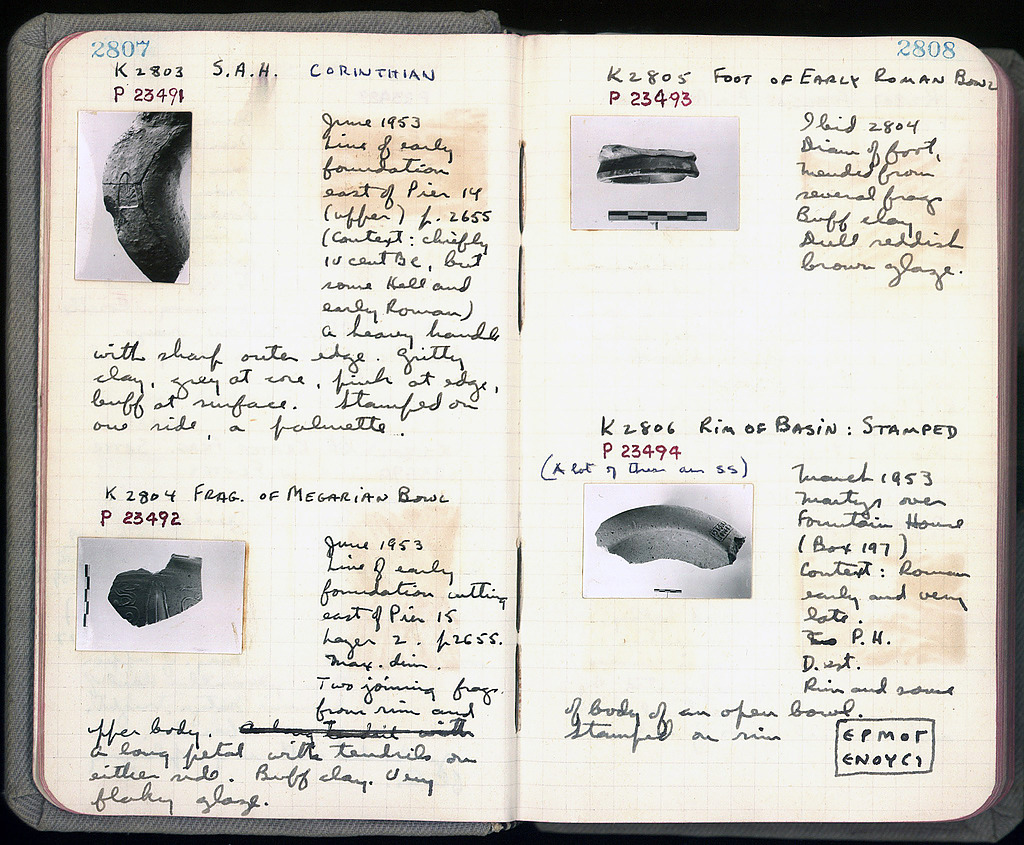 2807
K 2803 S.A.H. CORINTHIAN
P 23491
June 1953
Line of early
foundation
east of Pier 14
(upper) p. 2655
(Context: chiefly
IV cent BC, but
some Hell and
early Roman)
A heavy handle
with sharp outer edge. Gritty
clay, grey at core, pink at edge,
buff at surface. Stamped on
one side, a palmette.
K 2804 FRAG. OF MEGARIAN BOWL
P 23492
June 1953
Line of early
foundation cutting
east of Pier 15
Layer 2. p 2655.
Max. dim.
Two joining frags.
from rim and
upper body.
a long petal with tendrils on
either side. Buff clay. Very
flaky glaze.
2808
K 2805 FOOT OF EARLY ROMAN BOWL
P 23493
Ibid 2804
Diam of foot,
Mended from
several frags
Buff clay
Dull reddish
brown glaze.
K 2806 RIM OF BASIN: STAMPED
P 23494
(A lot of these are SS)
March 1953
Martys over
Fountain House
(Box 197)
Context: Roman
early and very
late.
P.H.
D. est.
Rim and some
of body of an open bowl.
Stamped on rim
EPMOΓ
ENOYCI